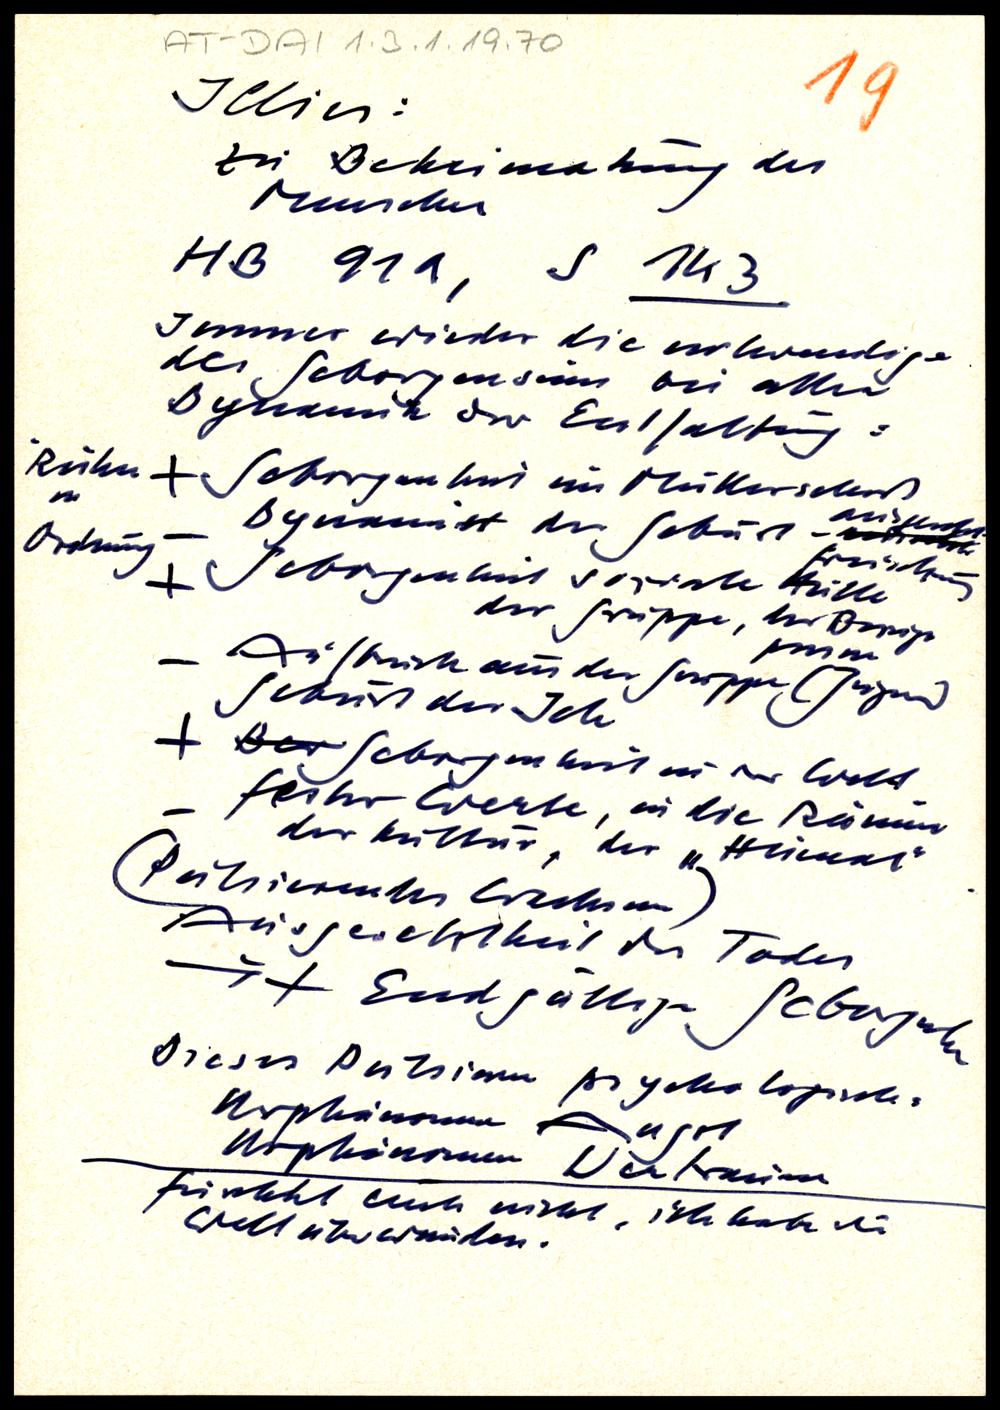 AT-DAI 1.3.1.19.70
19
Illies:
Zur Beheimatung des
Menschen
HB 911, S 143
Immer wieder die notwendige
des Geborgenseins bei aller
Dynamik der Entfaltung:
+ Geborgenheit im Mutterschoß
Ruhe
in
Ordnung
- Dynamik der Geburt -
+ Geborgenheit soziale Hülle
der Gruppe, der Bezugs
person
- Aufbruch aus der Gruppe (Jugend)
Geburt des Ich
+ Geborgenheit in der Welt
fester Werte, in die Räume
- der Kultur, der "Heimat"
(Pulsierendes Wachsen)
Ausgesetztheit des Todes
→ + Endgültige Geborgenh
Dieses Pulsieren psychologisch:
Urphänomen Angst
Urphänomen Vertrauen
fürchtet euch nicht, ich habe die
Welt überwunden.